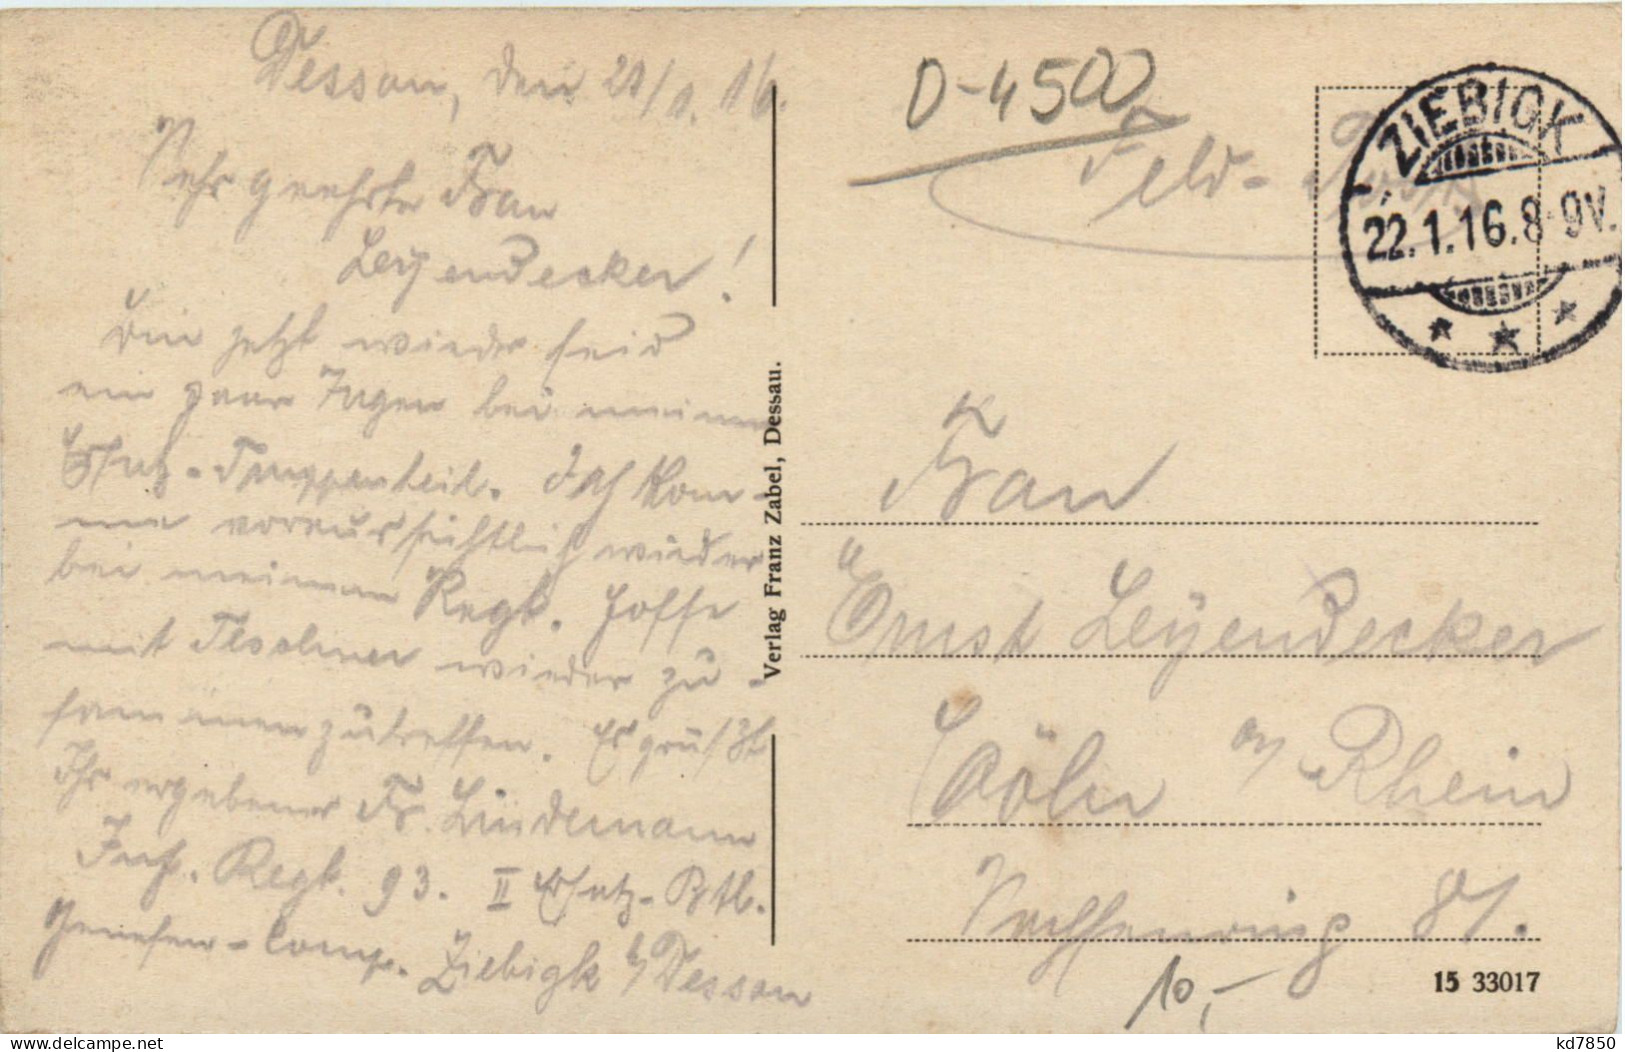 Dessau, den 21/1.16.
Sehr geehrte Frau
Leyendecker!
Bin jetzt wieder seid
ein paar Tagen bei meinem
Ersatz-Truppenteil. Ich kom-
me voraussichtlich wieder
bei meinem Regt. Hoffe
mit wieder zu-
sammenzutreffen. Es grüßt
Ihr ergebener Fr. Lindemann
Inf. Regt. 93. II Ersatz-Btl.
Genesen-Comp. Ziebigk b/Dessau
Verlag Franz Zabel, Dessau.
D-4500
Feld-Post
ZIEBIGK
22.1.16.8-9V.
Frau
Ernst Leyendecker
Cöln a/ Rhein
Sachsenring 81.
10,-
15 33017
kd7850